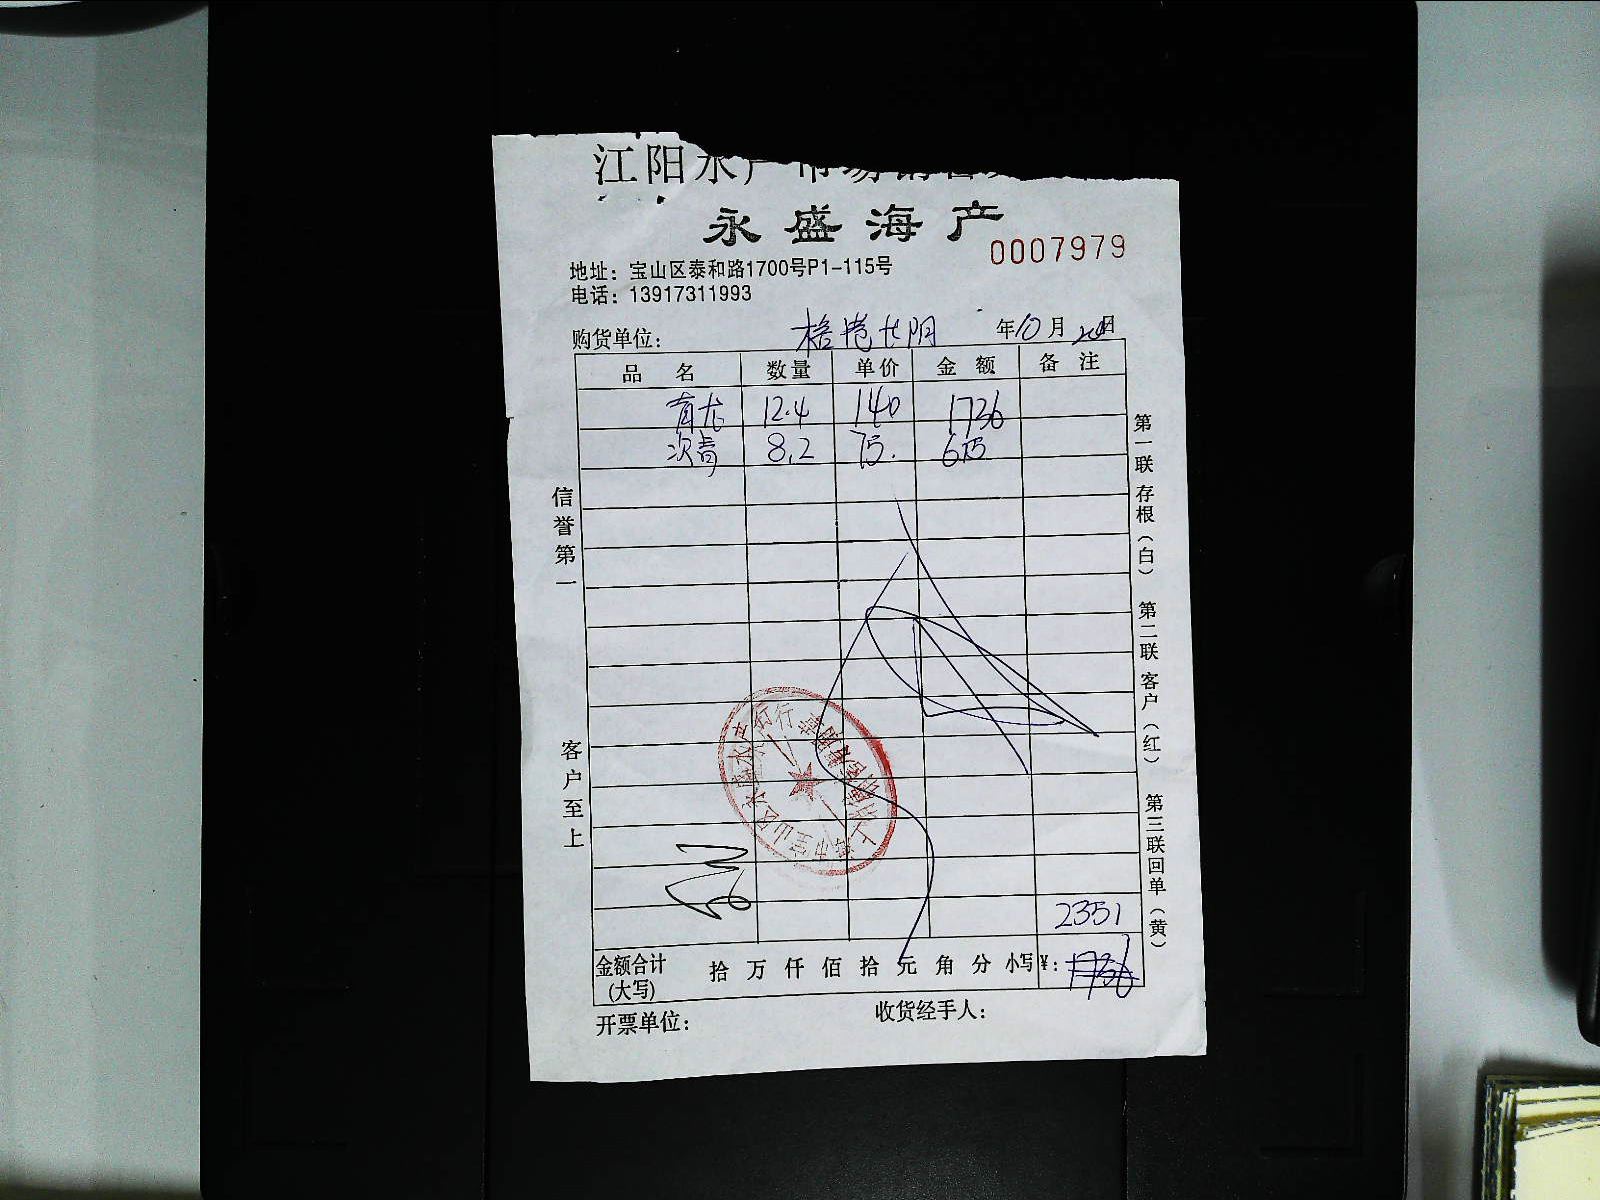 江阳水产市场销售
永盛海产
0007979
地址：宝山区泰和路1700号P1-115号
电话：13917311993
购货单位： 年10月 日
品名 数量 单价 金额 备注
青龙 12.4 140 1736
次青 8.2 75. 615
2351
金额合计(大写) 拾 万 仟 佰 拾 元 角 分 小写¥： 1736
开票单位： 收货经手人：
信誉第一
客户至上
第一联 存根（白） 第二联 客户（红） 第三联 回单（黄）